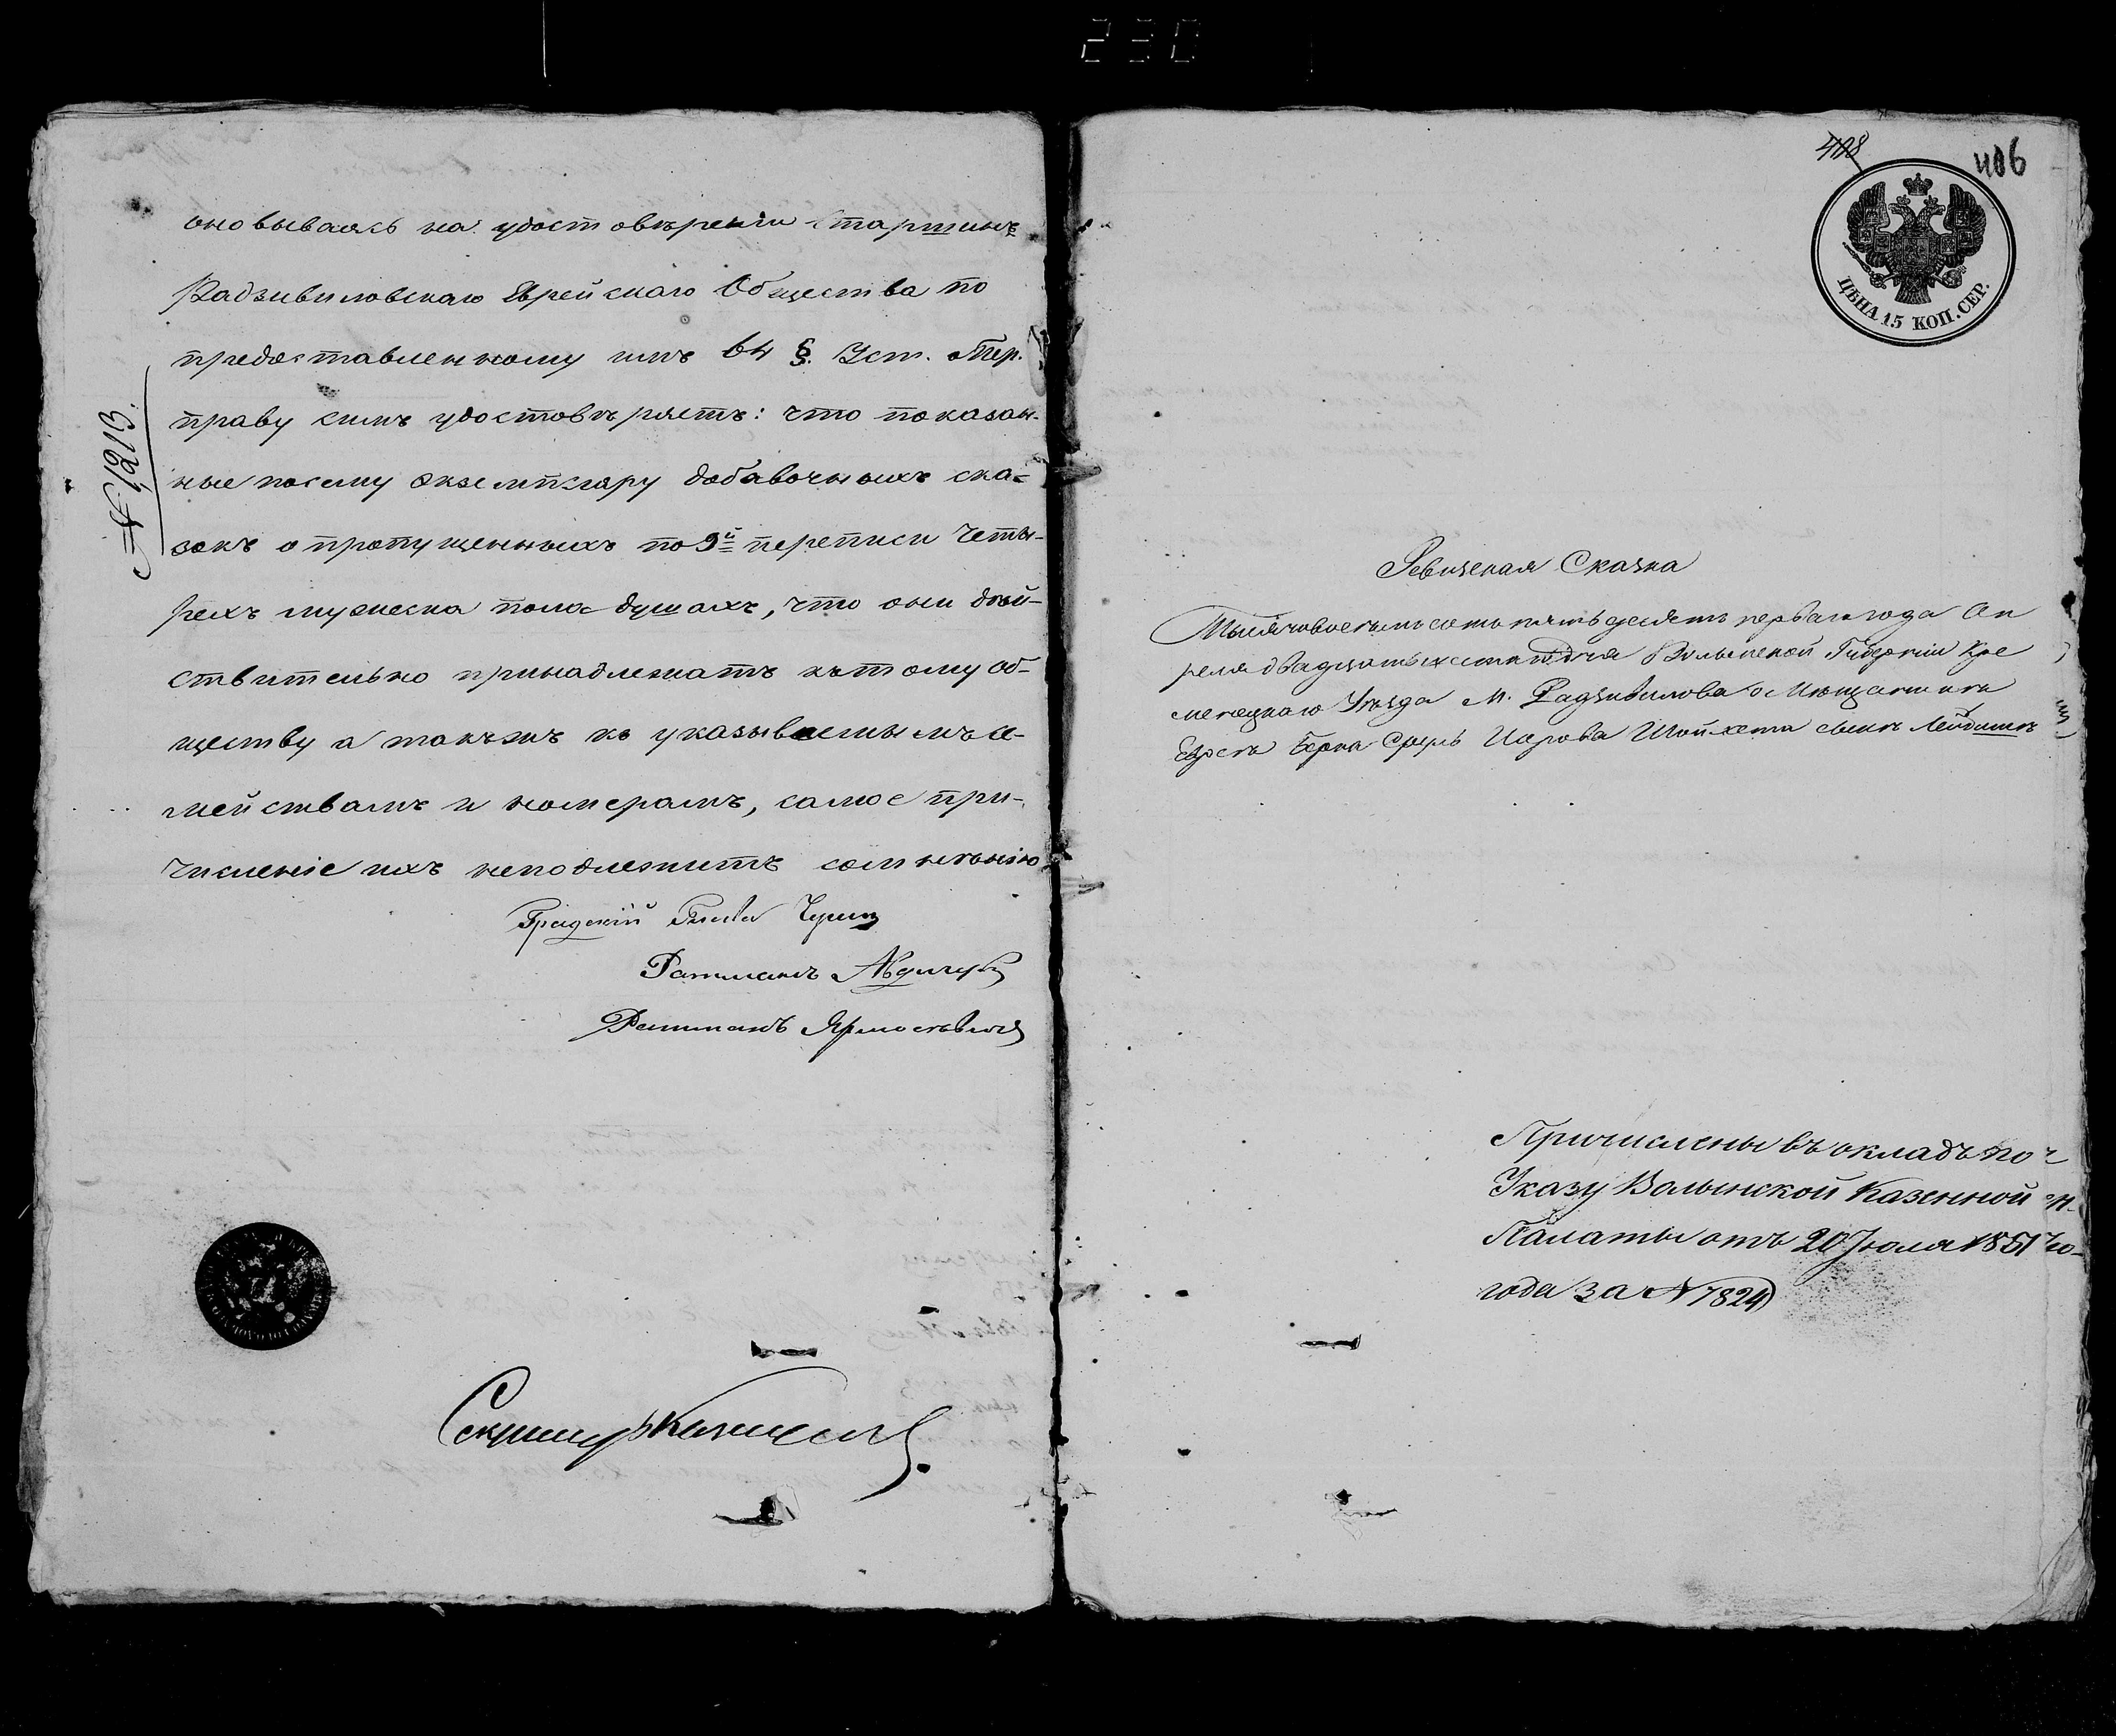 230
оновываясь на удостовѣреніи Старшинъ
Радзивиловскаго Еврейскаго Общества по
предоставленному имъ 64 §. Уст. о Пер.
праву симъ удостовѣряетъ: что показан-
ные посему экземпляру добавочныхъ ска-
зокъ о пропущенныхъ по 9й переписи Четы-
рехъ мужеска пола душахъ, что они дѣй-
ствительно принадлежатъ кътому об-
ществу а такъжъ къ указываемымъ се-
мействамъ и номерамъ, самое при-
численіе ихъ неподлежитъ сомнѣнію
№ 1213.
Градскій Глава
Ратманъ
Ратманъ
408
406
ЦѢНА 15 КОП. СЕР.
Ревизская Сказка
Тысяча восемьсотъ пятьдесятъ перваго года Ап
реля двадцать шестаго дня Волынской Губерніи Кре
менецкаго Уѣзда М. Радзивилова о Мѣщанинѣ
Еврей Берко Сруль Иосрова Шойхета сынъ
Причислены въ окладъ по
Указу Волынской Казенной
Палаты отъ 20 Іюля 1851 го
года за № 7824